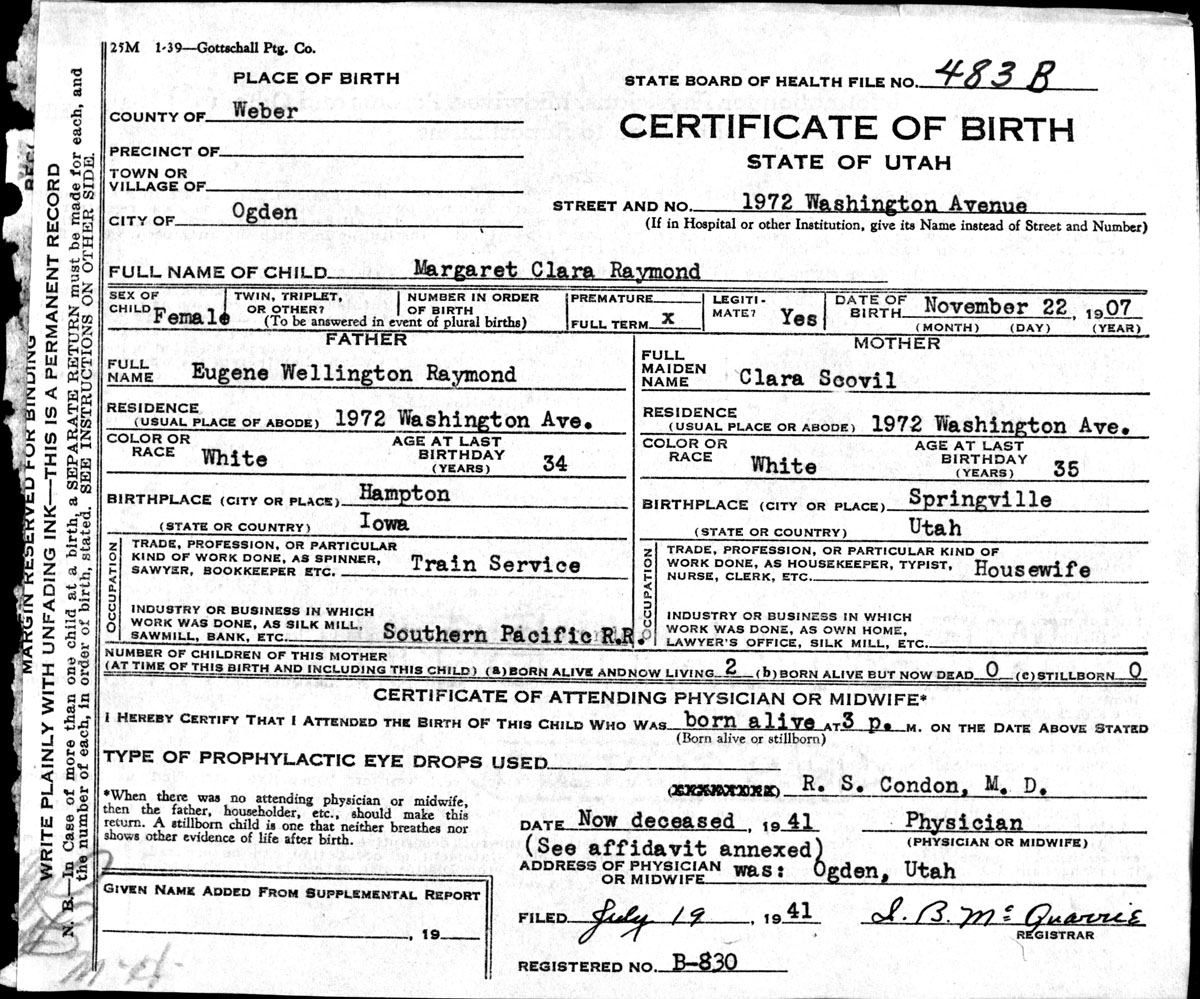 25M 1-39—Gottschall Ptg. Co.
PLACE OF BIRTH
STATE BOARD OF HEALTH FILE NO. 483 B
COUNTY OF Weber
CERTIFICATE OF BIRTH
PRECINCT OF
STATE OF UTAH
TOWN OR
VILLAGE OF
CITY OF Ogden
STREET AND NO. 1972 Washington Avenue
(If in Hospital or other Institution, give its Name instead of Street and Number)
FULL NAME OF CHILD Margaret Clara Raymond
SEX OF
CHILD Female
TWIN, TRIPLET,
OR OTHER?
NUMBER IN ORDER
OF BIRTH
(To be answered in event of plural births)
PREMATURE
FULL TERM x
LEGITI-
MATE? Yes
DATE OF
BIRTH November 22, 1907
(MONTH) (DAY) (YEAR)
FATHER
FULL
NAME Eugene Wellington Raymond
RESIDENCE
(USUAL PLACE OF ABODE) 1972 Washington Ave.
COLOR OR
RACE White
AGE AT LAST
BIRTHDAY
(YEARS) 34
BIRTHPLACE (CITY OR PLACE) Hampton
(STATE OR COUNTRY) Iowa
OCCUPATION
TRADE, PROFESSION, OR PARTICULAR
KIND OF WORK DONE, AS SPINNER,
SAWYER, BOOKKEEPER ETC. Train Service
INDUSTRY OR BUSINESS IN WHICH
WORK WAS DONE, AS SILK MILL,
SAWMILL, BANK, ETC. Southern Pacific R.R.
MOTHER
FULL
MAIDEN
NAME Clara Scovil
RESIDENCE
(USUAL PLACE OR ABODE) 1972 Washington Ave.
COLOR OR
RACE White
AGE AT LAST
BIRTHDAY
(YEARS) 35
BIRTHPLACE (CITY OR PLACE) Springville
(STATE OR COUNTRY) Utah
OCCUPATION
TRADE, PROFESSION, OR PARTICULAR KIND OF
WORK DONE, AS HOUSEKEEPER, TYPIST,
NURSE, CLERK, ETC. Housewife
INDUSTRY OR BUSINESS IN WHICH
WORK WAS DONE, AS OWN HOME,
LAWYER'S OFFICE, SILK MILL, ETC.
NUMBER OF CHILDREN OF THIS MOTHER
(AT TIME OF THIS BIRTH AND INCLUDING THIS CHILD) (a) BORN ALIVE AND NOW LIVING 2 (b) BORN ALIVE BUT NOW DEAD 0 (c) STILLBORN 0
CERTIFICATE OF ATTENDING PHYSICIAN OR MIDWIFE*
I HEREBY CERTIFY THAT I ATTENDED THE BIRTH OF THIS CHILD WHO WAS born alive AT 3 p. M. ON THE DATE ABOVE STATED
(Born alive or stillborn)
TYPE OF PROPHYLACTIC EYE DROPS USED
*When there was no attending physician or midwife,
then the father, householder, etc., should make this
return. A stillborn child is one that neither breathes nor
shows other evidence of life after birth.
R. S. Condon, M. D.
DATE Now deceased, 1941 Physician
(PHYSICIAN OR MIDWIFE)
(See affidavit annexed)
ADDRESS OF PHYSICIAN
OR MIDWIFE was: Ogden, Utah
GIVEN NAME ADDED FROM SUPPLEMENTAL REPORT
, 19
FILED July 19, 1941 I. B. McQuarrie
REGISTRAR
REGISTERED NO. B-830
MARGIN RESERVED FOR BINDING
WRITE PLAINLY WITH UNFADING INK—THIS IS A PERMANENT RECORD
N. B.—In Case of more than one child at a birth, a SEPARATE RETURN must be made for each, and
the number of each, in order of birth, stated. SEE INSTRUCTIONS ON OTHER SIDE.